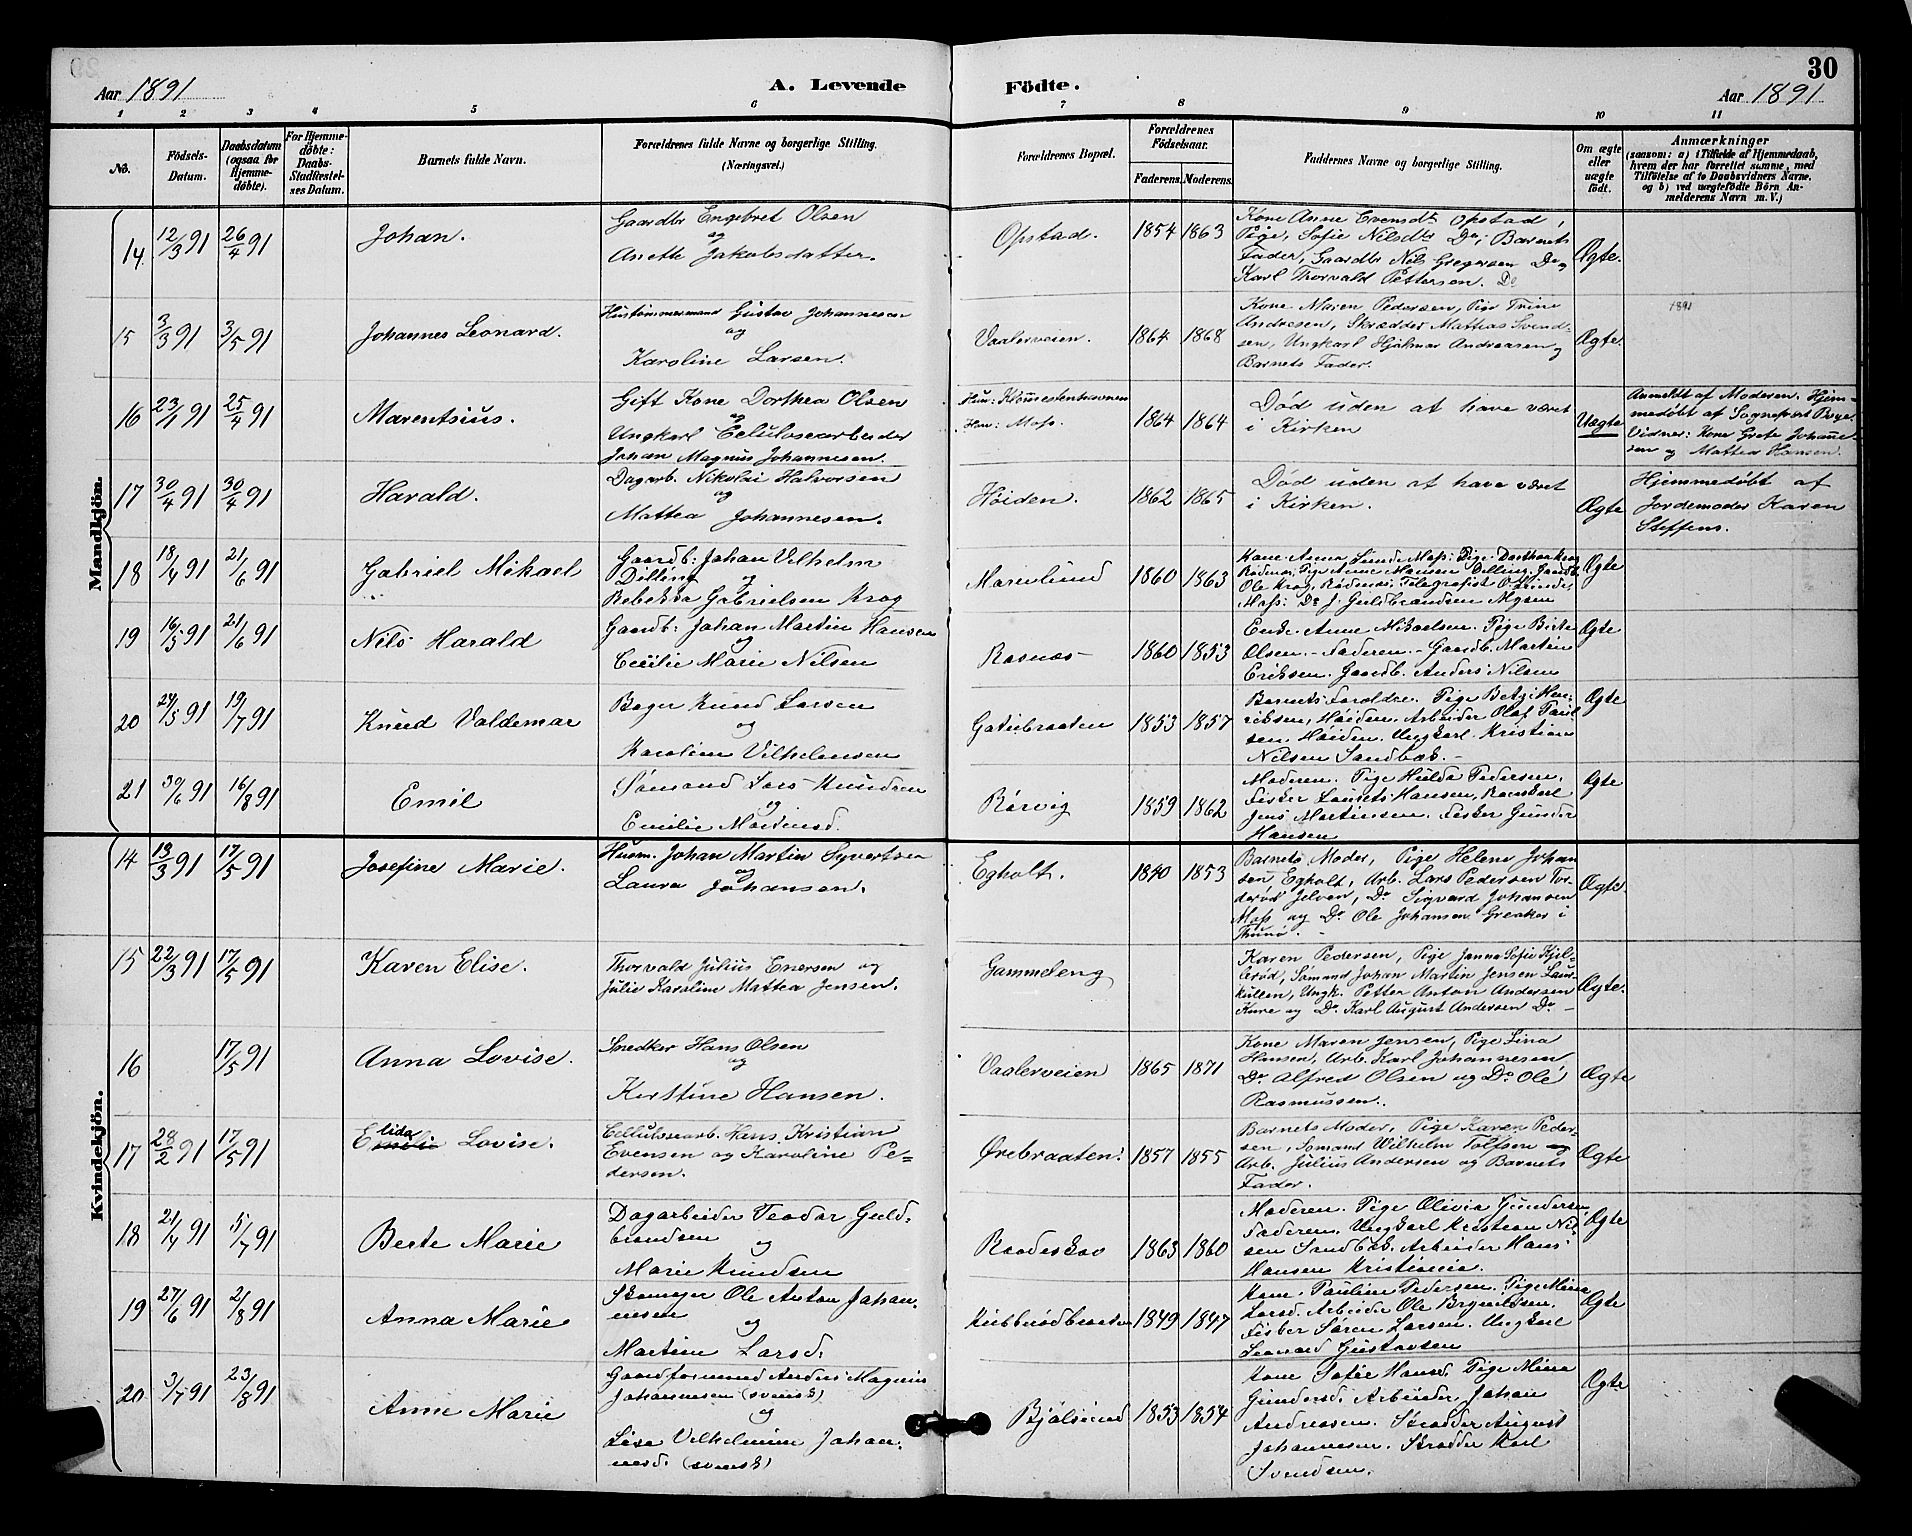 30
Aar 1891
A. Levende
Födte.
Aar 1891
1 2 3 4 5 6 7 8 9 10 11
No.
Födsels-Datum.
Daabsdatum (ogsaa for Hjemmedöbte).
For Hjemmedöbte: Daabs-Stadfæstelses Datum.
Barnets fulde Navn.
Forældrenes fulde Navne og borgerlige Stilling. (Næringsvei.)
Forældrenes Bopæl.
Forældrenes Födselsaar.
Faderens. Moderens.
Faddernes Navne og borgerlige Stilling.
Om ægte eller uægte født.
Anmærkninger
(saasom: a) i Tilfælde af Hjemmedaab, hvem der har forrettet samme, med Tilföielse af to Daabsvidners Navne, og b) ved uægtefödte Börn Anmelderens Navn m. V.)
Mandkjön.
14. 12/3 91 26/4 91 Johan.
Gaardbr Engebret Olsen
og
Anette Jakobsdatter.
Opstad. 1854 1863
Kone Anne Evensdtr Opstad,
Pige, Sofie Nilsdtr Do, Barnets
Fader, Gaardbr Nils Gregersen Do og
Karl Thorvald Pettersen. Do
Ægte.
15 3/3 91 3/5 91 Johannes Leonard.
Hustømmermand Gustav Johannesen
og
Karoline Larsen.
Vaalerveien. 1864 1868
Kone Maren Pedersen, Pige Trine
Andresen, Skrædder Mathias Svend-
sen, Ungkarl Hjalmar Andreasen og
Barnets Fader.
Ægte.
1891
16 23/1 91 25/4 91 Marentsius.
Gift Kone Dorthea Olsen
og
Ungkarl Celulosearbeider
Johan Magnus Johannesen.
Han: Moss. 1864 1864
Død uden at have været
i Kirken
Uægte
Anmeldt af Moderen. Hjem-
medøbt af Sognepræst Boye
Vidner: Kone Grete Johanne-
sen og Mathea Hansen.
17 30/4 91 30/4 91 Harald.
Dagarb. Nikolai Halvorsen
og
Mattea Johannesen.
Höiden. 1862 1865
Død uden at have været
i Kirken.
Ægte
Hjemmedøbt af
Jordemoder Karen
Steffens.
18 18/4 91 21/6 91 Gabriel Mikael
Gaardb: Johan Vilhelm
Dilling og
Rebekka Gabrielsen Krog
Marielund 1860 1863
Kone Anna Lunde Moss: Pige Dorthea Krog
Rødenæs, Pige Anne Hansen Dilling, Gaardb.
Ole Krog, Rødenæs, Telegrafist O. Lunde,
Moss: Do J. Guldbrandsen Mysen
Ægte
19 16/5 91 21/6 91 Nils Harald
Gaardb: Johan Martin Hansen
og
Cecilie Marie Nilsen
Rosnæs 1860 1853
Enke Anne Mikaelsen. Pige Birte
Olsen. Faderen. Gaardb. Martin
Eriksen. Gaardb. Anders Nilsen
Ægte
20 24/5 91 19/7 91 Knud Valdemar
Bager Knud Larsen
og
Karoline Vilhelmsen
Gatubraaten 1853 1857
Barnets Forældre. Pige Betzi Hen-
riksen, Höiden. Arbeider Olaf Paul-
sen. Höiden. Ungkarl Kristian
Nilsen Sandbæk.
Ægte
21 30/6 91 16/8 91 Emil
Sömand Lars Knudsen
og
Emilie Mortensd.
Rörvig 1859 1862
Moderen. Pige Hulda Pedersen.
Fisker Laurets Hansen,
Jens Martinsen. Fisker Gunder
Hansen
Ægte
Kvindekjön.
14 13/3 91 17/5 91 Josefine Marie.
Husm. Johan Martin Syvertsen
og
Laura Johansen.
Egholt. 1840 1853
Barnets Moder, Pige Helene Johan
sen Egholt, Arb. Lars Pedersen Tor-
derød Jelöen, Do Sigvard Johansen
Moss og Do Ole Johansen Greaker i
Thunö.
Ægte.
15 22/3 91 17/5 91 Karen Elise.
Thorvald Julius Enersen og
Julie Karoline Mattea Jensen.
Gammeleng
Karen Pedersen, Pige Janna Sofie Kjel-
lerød, Sømand Johan Martin Jensen Laur-
kullen, Ungk. Petter Anton Andersen
Kure og Do Karl August Andersen Do
Ægte.
16 17/5 91 Anna Lovise.
Snedker Hans Olsen
og
Kirstine Hansen.
Vaalerveien 1865 1871
Kone Maren Jensen, Pige Lina
Hansen, Arb. Karl Johannesen
Do Alfred Olsen og Do Ole
Rasmussen.
Ægte
17 28/2 91 17/5 91 Elida Lovise.
Cellulosearb. Hans Kristian
Evensen og Karoline Pe-
dersen.
Ørebraaten. 1857 1855
Barnets Moder, Pige Karen Peder-
sen, Sømand Wilhelm Tolfsen og
Arb. Julius Andersen og Barnets
Fader.
Ægte
18 21/4 91 5/7 91 Berte Marie
Dagarbeider Teodor Guld-
brandsen
og
Marie Knudsen
Raadeskov 1863 1860
Moderen. Pige Olivia Gundersen
Faderen. Ungkarl Kristian Nil-
sen Sandbæk. Arbeider Hans
Hansen Kristiania.
Ægte
19 27/6 91 2/8 91 Anna Marie
Skomager Ole Anton Johan-
nesen
og
Martine Larsd.
Kubberödbraaten 1849 1847
Kone Pauline Pedersen. Pige Mina
Larsd. Arbeider Ole Brynildsen.
Fisker Søren Larsen. Ungkarl
Leonard Gustavsen
Ægte
20 3/7 91 23/8 91 Anne Marie
Gaardformand Anders Magnus
Johannesen (svensk)
og
Lise Vilhelmine Johan-
nesd. (svensk)
Bjölsund 1853 1854
Kone Sofie Hansd. Pige Mina
Gundersd. Arbeider Johan
Andreasen. Skrædder August
Johannesen. Skrædder Karl
Svendsen.
Ægte